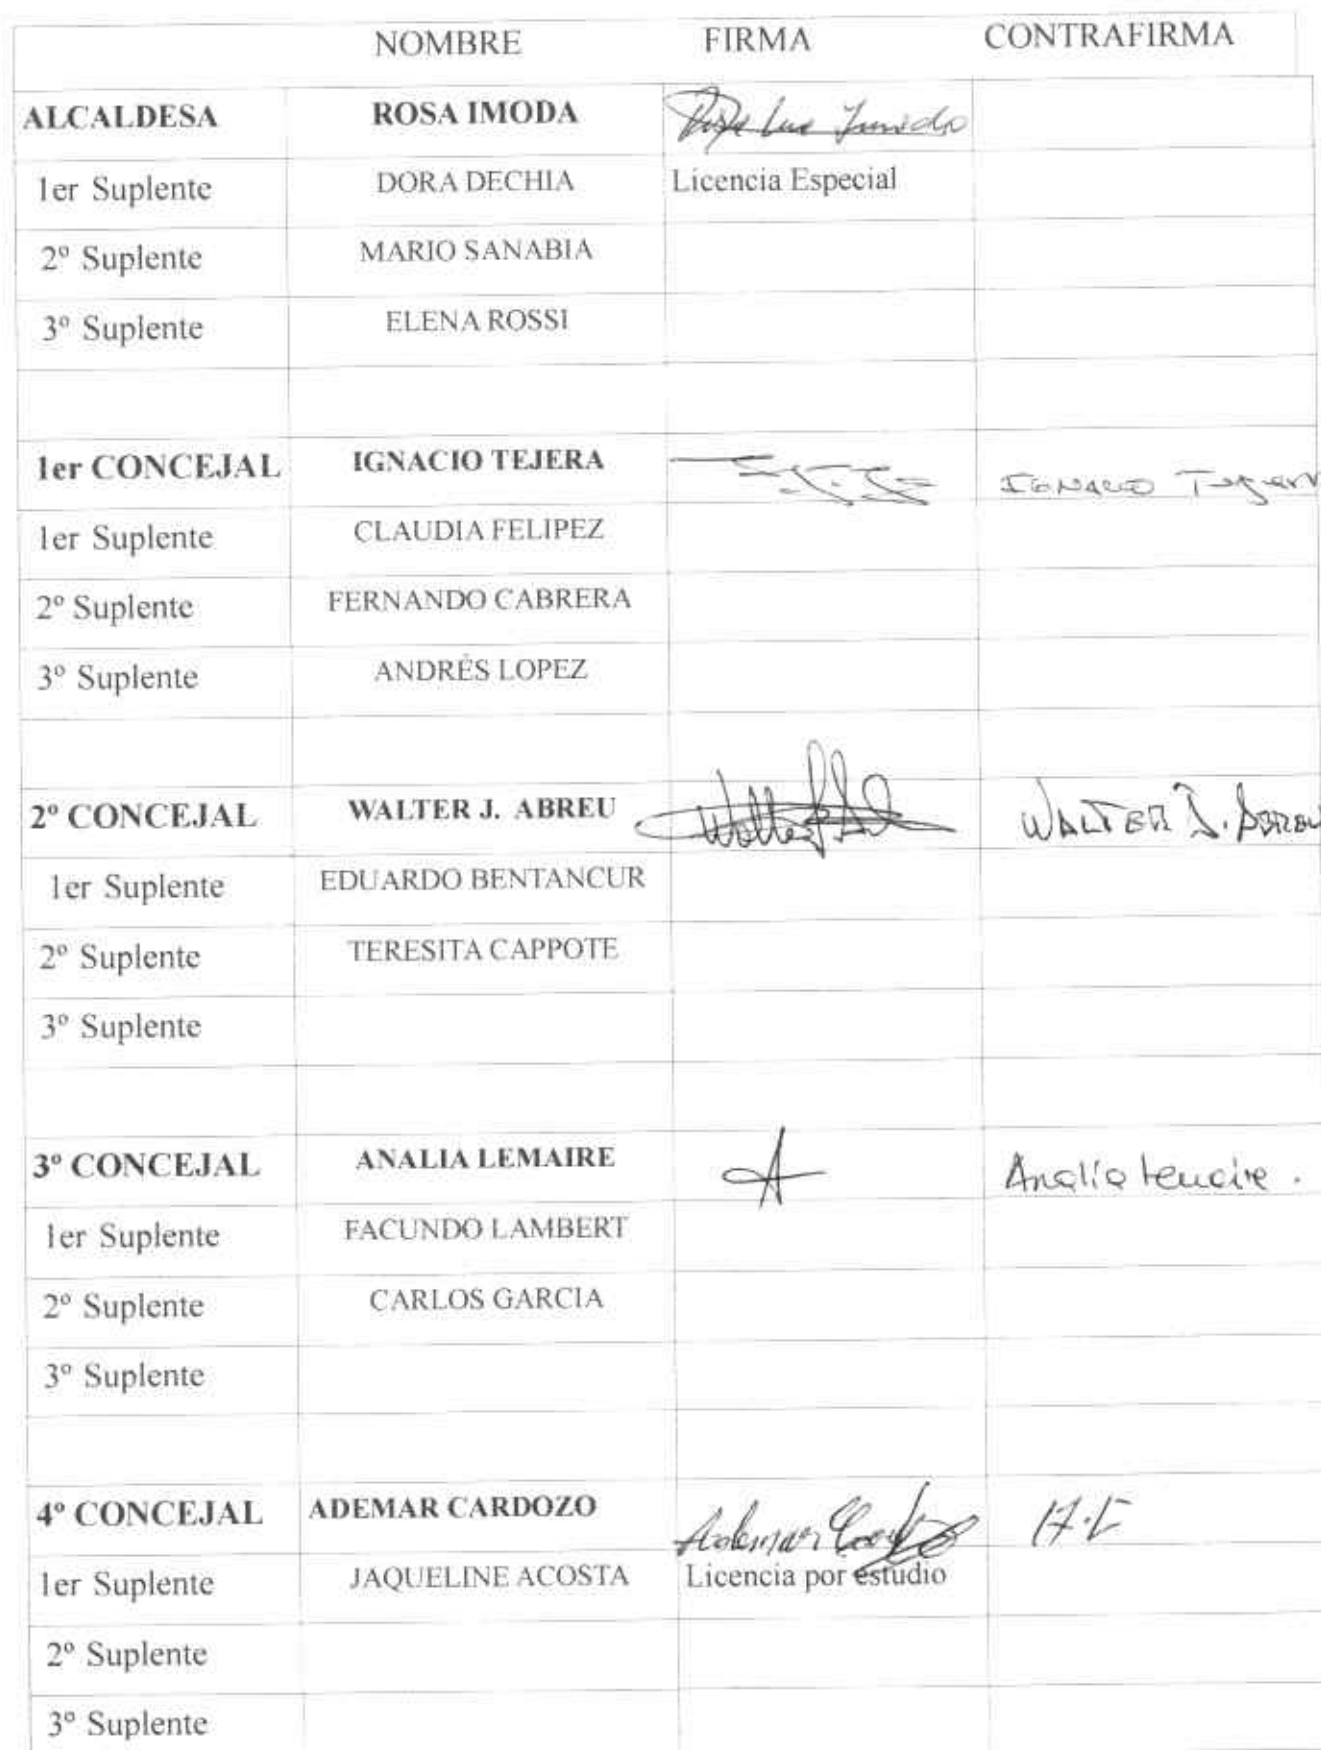 NOMBRE FIRMA CONTRAFIRMA
ALCALDESA ROSA IMODA
1er Suplente DORA DECHIA Licencia Especial
2º Suplente MARIO SANABIA
3º Suplente ELENA ROSSI
1er CONCEJAL IGNACIO TEJERA IGNACIO
1er Suplente CLAUDIA FELIPEZ
2º Suplente FERNANDO CABRERA
3º Suplente ANDRÉS LOPEZ
2º CONCEJAL WALTER J. ABREU Walter WALTER J. ABREU
1er Suplente EDUARDO BENTANCUR
2º Suplente TERESITA CAPPOTE
3º Suplente
3º CONCEJAL ANALIA LEMAIRE A Analía Lemaire.
1er Suplente FACUNDO LAMBERT
2º Suplente CARLOS GARCIA
3º Suplente
4º CONCEJAL ADEMAR CARDOZO Ademar
1er Suplente JAQUELINE ACOSTA Licencia por estudio
2º Suplente
3º Suplente